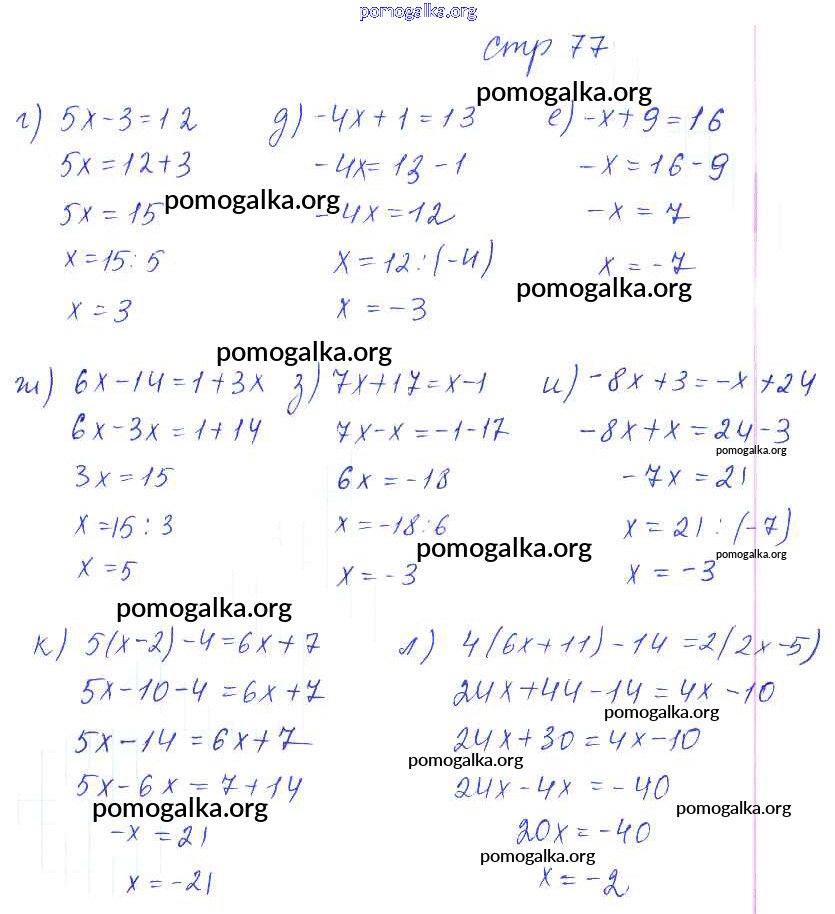 pomogalka.org
стр 77
pomogalka.org
г) 5x-3=12 д) -4x+1=13 е) -x+9=16
5x=12+3 -4x=13-1 -x=16-9
pomogalka.org
5x=15 -4x=12 -x=7
x=15:5 x=12:(-4) x=-7
pomogalka.org
x=3 x=-3
pomogalka.org
ж) 6x-14=1+3x з) 7x+17=x-1 и) -8x+3=-x+24
6x-3x=1+14 7x-x=-1-17 -8x+x=24-3
pomogalka.org
3x=15 6x=-18 -7x=21
x=15:3 x=-18:6 x=21:(-7)
pomogalka.org pomogalka.org
x=5 x=-3 x=-3
pomogalka.org
к) 5(x-2)-4=6x+7 л) 4(6x+11)-14=2(2x-5)
5x-10-4=6x+7 24x+44-14=4x-10
pomogalka.org
5x-14=6x+7 24x+30=4x-10
pomogalka.org
5x-6x=7+14 24x-4x=-40
pomogalka.org pomogalka.org
-x=21 20x=-40
pomogalka.org
x=-21 x=-2